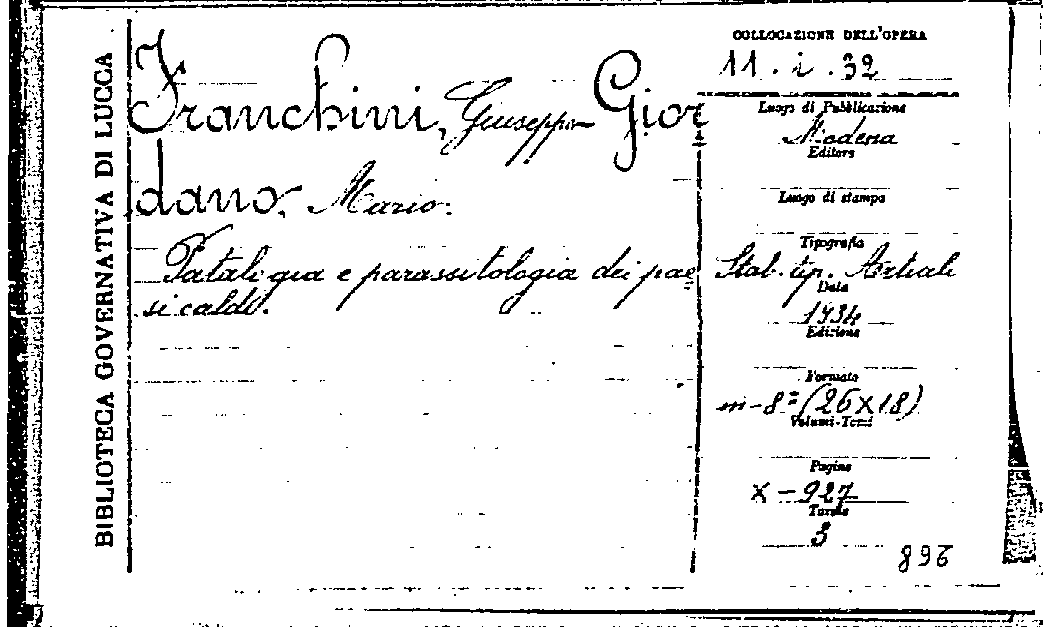 BIBLIOTECA GOVERNATIVA DI LUCCA
Franchini, Giuseppe - Gior
dano, Mario.
Patologia e parassitologia dei pae
si caldi.
COLLOCAZIONE DELL'OPERA
11. i. 32
Luogo di Pubblicazione
Modena
Editore
Luogo di stampa
Tipografia
Stab. tip. Artioli
Data
1934
Edizione
Formato
in-8º (26x18)
Volumi-Tomi
Pagine
X-927
Tavole
3
896